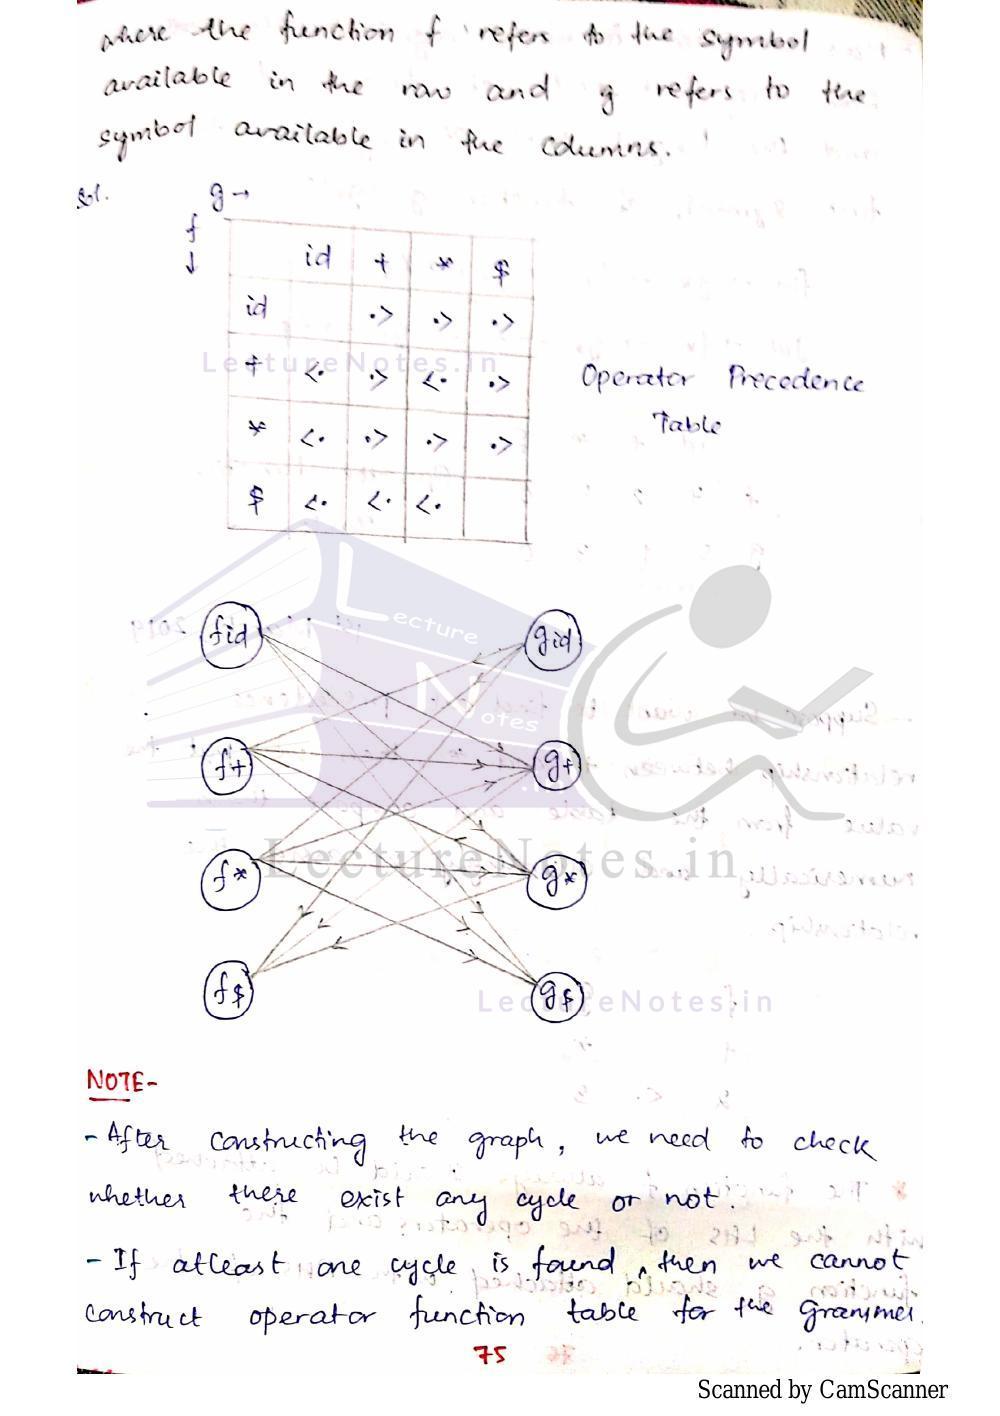 where the function f refers to the symbol
available in the row and g refers to the
symbol available in the columns.
Sol.
g →
f
↓
id + * $
id ·> ·> ·>
+ <· ·> <· ·>
* <· ·> ·> ·>
$ <· <· <·
Operator Precedence
Table
LectureNotes.in
fid gid
Lecture
Notes
.in
f+ g+
LectureNotes.in
f* g*
f$ g$
LectureNotes.in
NOTE-
- After constructing the graph, we need to check
whether there exist any cycle or not.
- If atleast one cycle is found, then we cannot
construct operator function table for the grammer.
75
Scanned by CamScanner